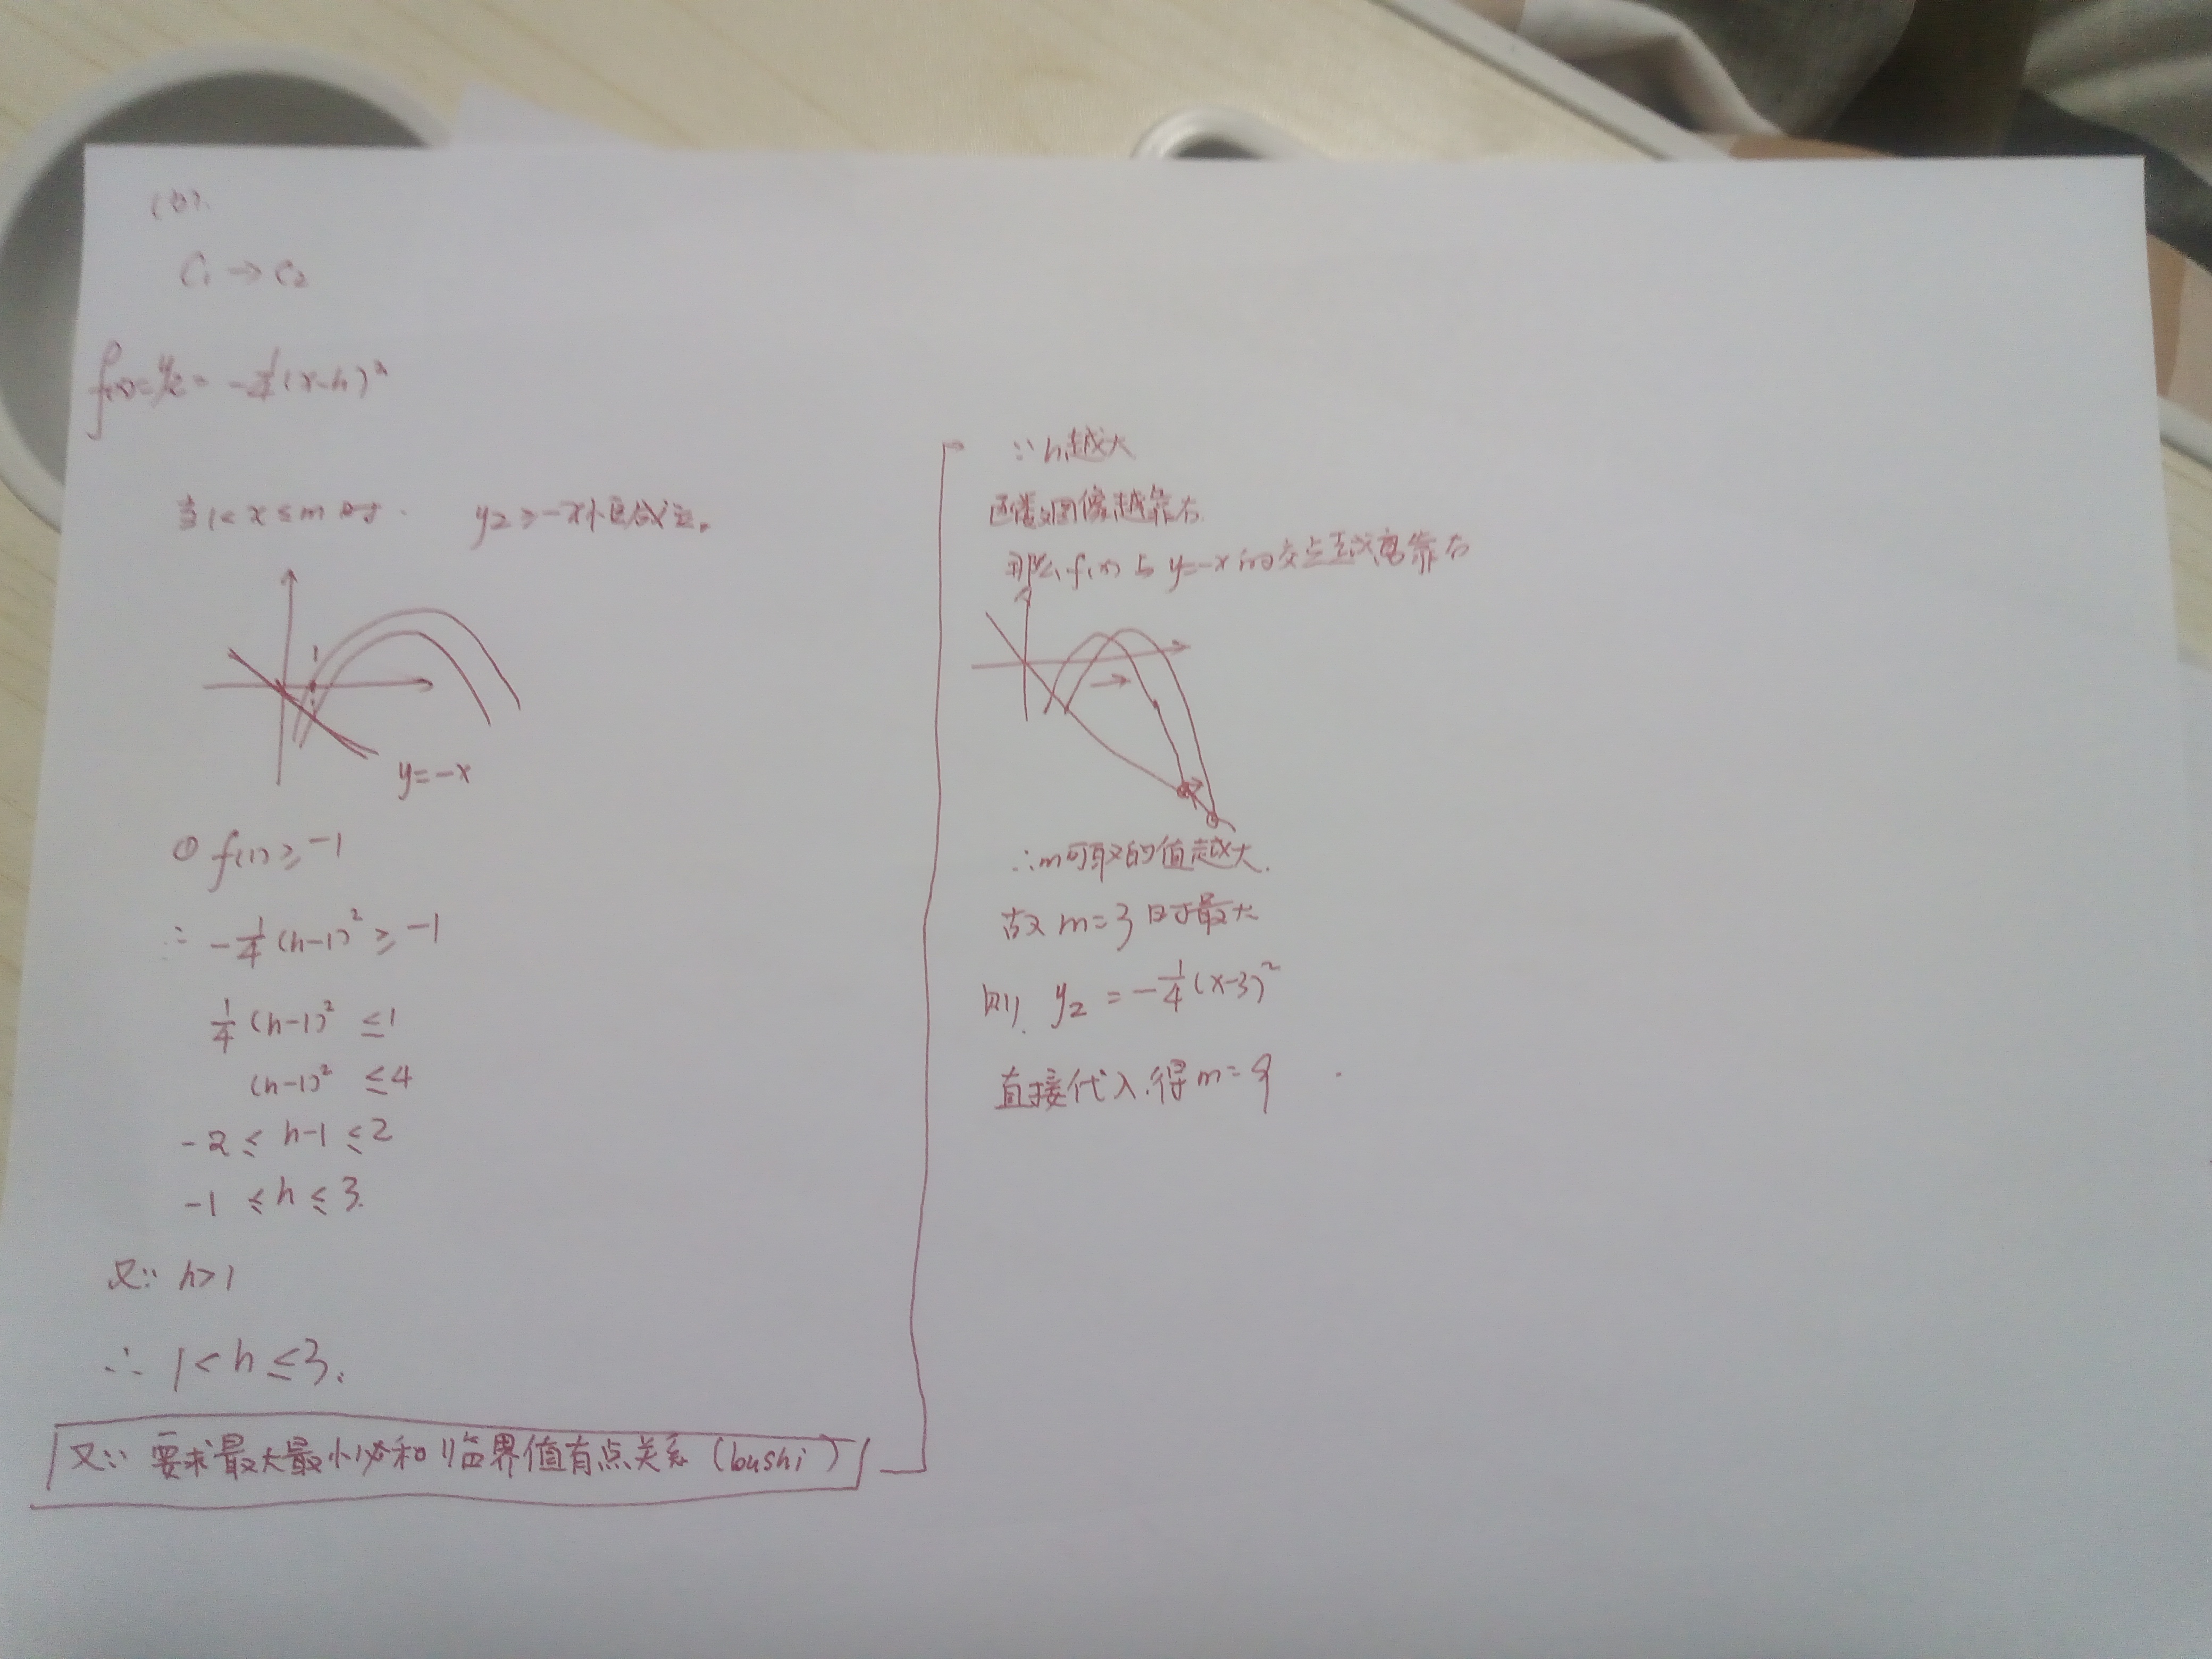 (3).
C₁ → C₂
f(x)=y₂= -1/4(x-h)²
当1<x≤m时. y₂≥-x恒成立。
1
y=-x
① f(1)≥-1
∴ -1/4(h-1)²≥-1
1/4(h-1)²≤1
(h-1)²≤4
-2≤h-1≤2
-1≤h≤3.
又∵ h>1
∴ 1<h≤3.
又∵ 要求最大最小必和临界值有点关系(bushi)
∵h越大
函数图像越靠右
那么f(x)与y=-x的交点越靠右
∴m可取的值越大.
故m=3时最大
则. y₂=-1/4(x-3)²
直接代入.得m=9